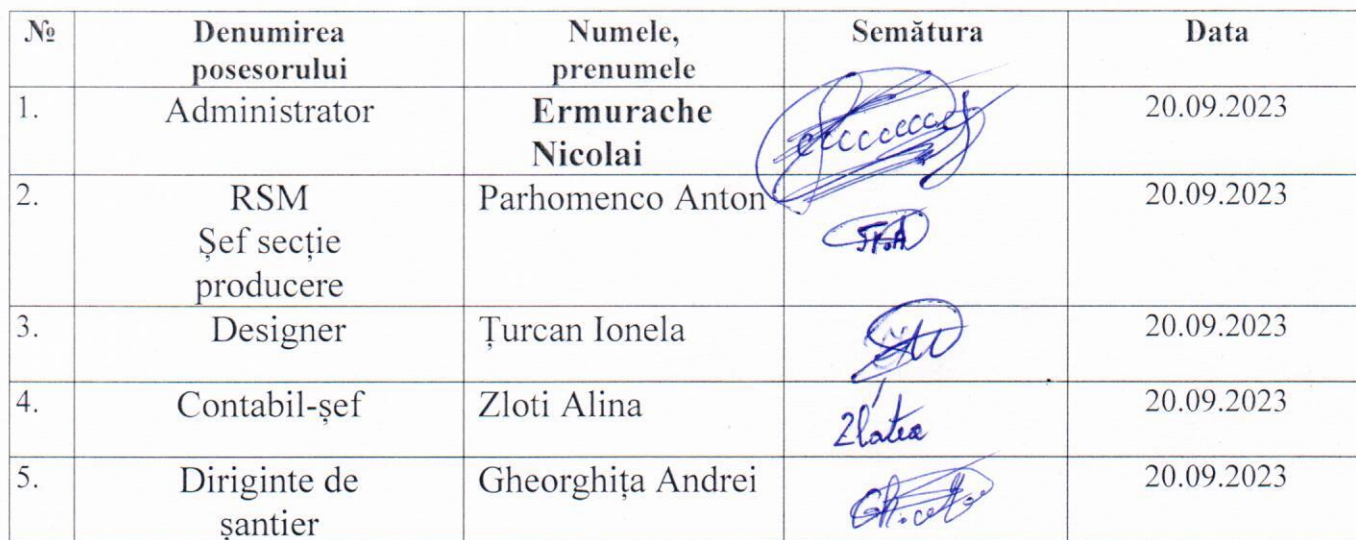 № Denumirea posesorului Numele, prenumele Semătura Data
1. Administrator Ermurache Nicolai 20.09.2023
2. RSM Șef secție producere Parhomenco Anton 20.09.2023
3. Designer Țurcan Ionela 20.09.2023
4. Contabil-șef Zloti Alina 20.09.2023
5. Diriginte de șantier Gheorghița Andrei 20.09.2023